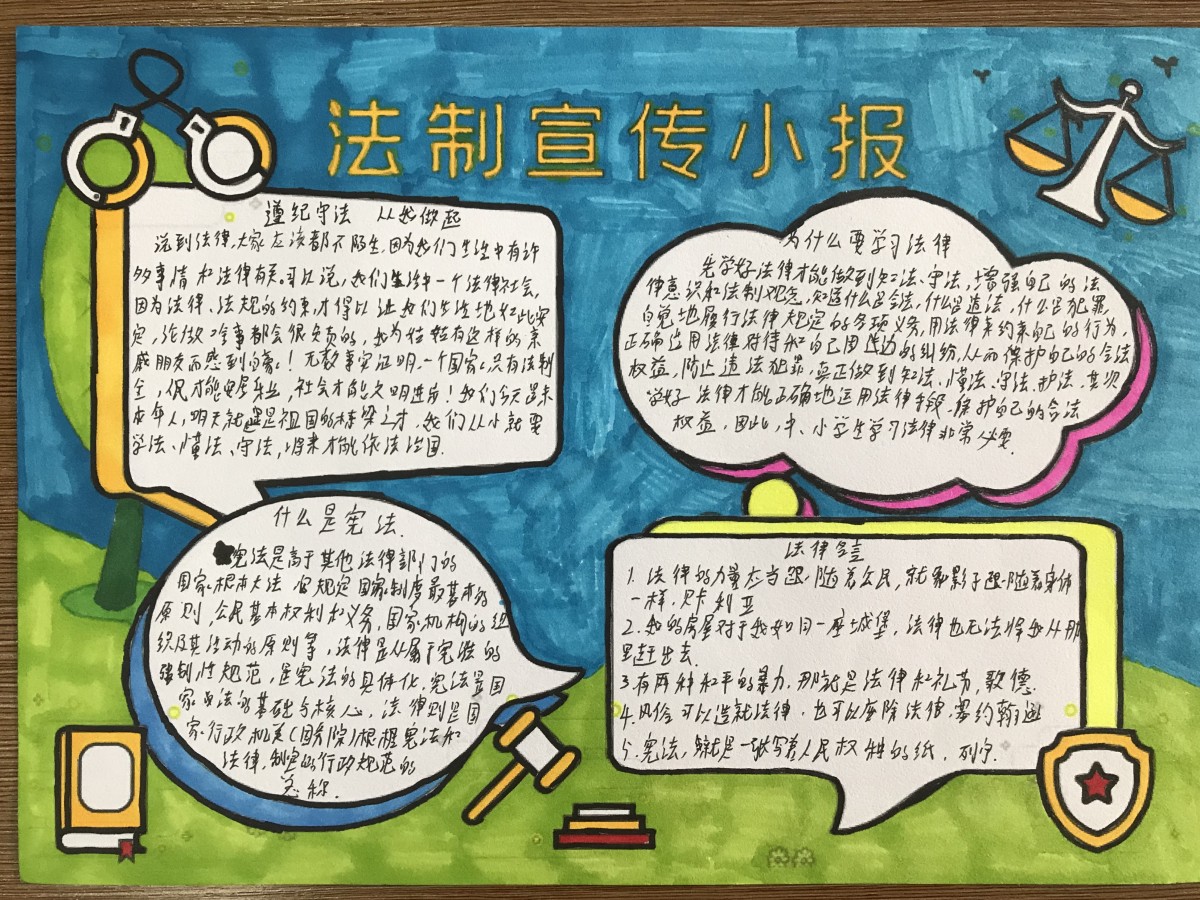 法制宣传小报
遵纪守法 从我做起
说到法律,大家应该都不陌生,因为我们生活中有许
多事情和法律有关。可以说,我们生活中一个法律社会,
因为法律、法规的约束,才得以让我们生活地如此安
定,论做啥事都会很负责的,我为
有这样的亲
戚朋友而感到自豪!无数事实证明,一个国家只有法制
全,民才能安居乐业,社会才能文明进步!我们今天是未
成年人,明天就是祖国的栋梁之才,我们从小就要
学法、懂法、守法,将来才能依法治国.
为什么要学习法律
先学好法律才能做到知法、守法,增强自己的法
律意识和法制观念,知道什么是合法,什么是违法,什么是犯罪,
自觉地履行法律规定的各项义务,用法律来约束自己的行为,
正确应用法律对待和自己周边的纠纷,从而保护自己的合法
权益,防止违法犯罪,真正做到知法、懂法、守法、护法.其次
学好法律才能正确地运用法律手段,保护自己的合法
权益,因此,中、小学生学习法律非常必要.
什么是宪法.
宪法是高于其他法律部门的
国家根本大法 规定国家制度最基本的
原则,公民基本权利和义务,国家机构的组
织及其活动的原则等,法律是从属于宪法的
强制性规范,是宪法的具体化,宪法是国
家法的基础与核心,法律则是国
家行政机关(国务院)根据宪法和
法律,制定的行政规范的
总称.
法律名言
1. 法律的力量应当跟随着公民,就像影子跟随着身体
一样,贝卡利亚
2.我的房屋对于我如同一座城堡,法律也无法将我从那
里赶出去.
3.有两种和平的暴力,那就是法律和礼节,歌德.
4.风俗可以造就法律,也可以废除法律.塞约翰逊
5.宪法,就是一张写着人民权利的纸,列宁.